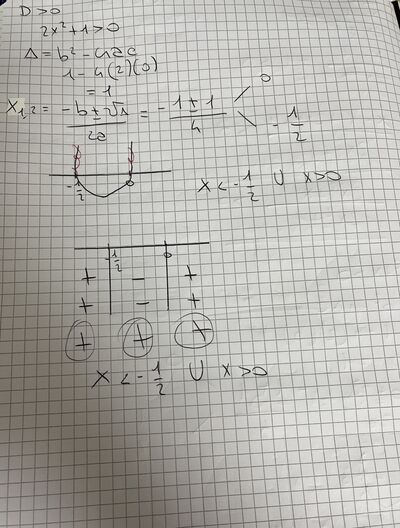 D > 0
2x² + 1 > 0
Δ = b² - 4ac
1 - 4(2)(0)
= 1
X₁,₂ = (-b ± √Δ)/2a = (-1 ± 1)/4
0
-1/2
-1/2 0
X < -1/2 ∪ X > 0
-1/2 0
+ - +
+ - +
+ + +
X < -1/2 ∪ X > 0